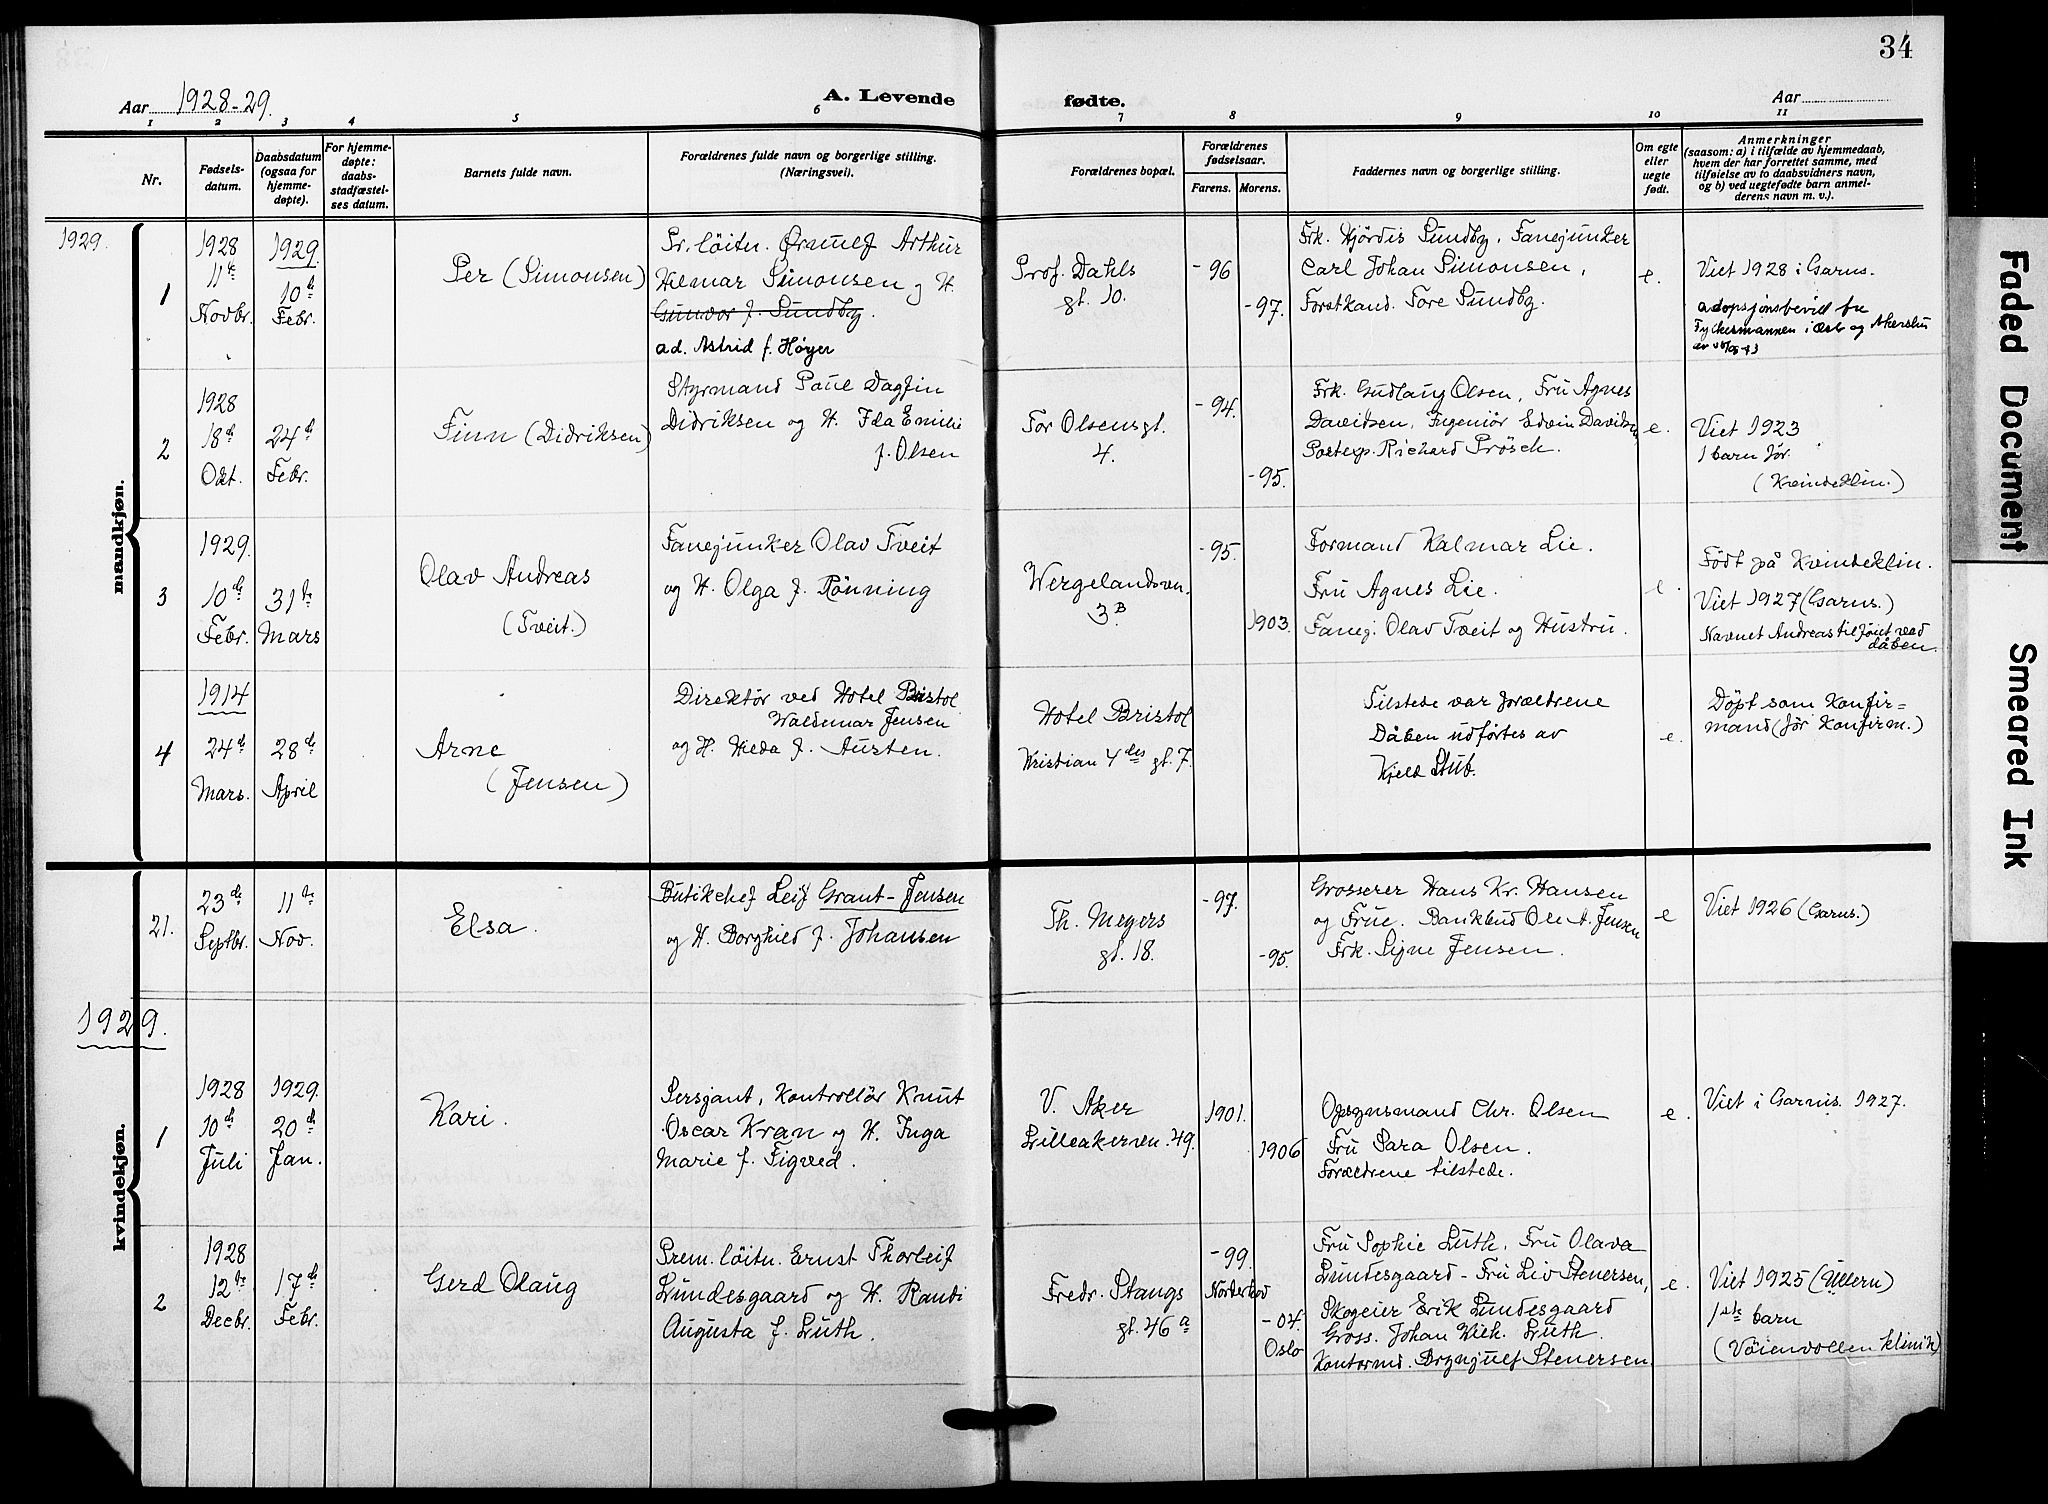 34
Aar 1928-29.
A. Levende
fødte.
Aar
1 2 3 4 5 6 7 8 9 10 11
Nr.
Fødsels-
datum.
Daabsdatum
(ogsaa for
hjemme-
døpte).
For hjemme-
døpte:
daabs-
stadfæstel-
ses datum.
Barnets fulde navn.
Forældrenes fulde navn og borgerlige stilling.
(Næringsvei).
Forældrenes bopæl.
Forældrenes
fødselsaar.
Farens. Morens.
Faddernes navn og borgerlige stilling.
Om egte
eller
uegte
født.
Anmerkninger
(saasom: a) i tilfælde av hjemmedaab,
hvem der har forrettet samme, med
tilføielse av to daabsvidners navn,
og b) ved uegtefødte barn anmel-
derens navn m. v.).
mandkjøn.
1929.
1
1928
11te
Novbr.
1929.
10de
Febr.
Per (Simonsen)
Pr. löitn. Ørnulf Arthur
Hilmar Simonsen og H.
Gunvor f. Sundby.
ad. Astrid f. Høyer
Prof. Dahls
gt. 10.
-96
-97.
Frk. Hjördis Sundby, Fanejunker
Carl Johan Simonsen,
Forstkand. Tore Sundby.
e.
Viet 1928 i Garns.
adopsjonsbevill fra
Fylkesmannen i Oslo og Akershus
2
1928
18de
Okt.
24de
Febr.
Finn (Didriksen)
Styrmand Paul Dagfin
Didriksen og H. Ida Emilie
f. Olsen
Tor Olsensgt.
4.
-94.
-95.
Frk. Gudlaug Olsen, Fru Agnes
Davidsen, Ingeniør Edvin Davidsen
Postexp. Richard Prösch.
e.
Viet 1923
1 barn før.
(Kvindeklin.)
3
1929.
10de
Febr.
31te
Mars
Olav Andreas
(Tveit.)
Fanejunker Olav Tveit
og H. Olga f. Rönning
Wergelandsvn.
3B
-95.
1903.
Formand Halmar Lie.
Fru Agnes Lie.
Fanej. Olav Tveit og Hustru.
e.
Född på Kvindeklin.
Viet 1927 (Garns.)
Navnet Andreas tilföiet ved
dåben.
4
1914
24de
Mars.
28de
April
Arne
(Jensen)
Direktör ved Hotel Bristol
Waldemar Jensen
og H. Hilda f. Austen.
Hotel Bristol
Kristian 4des gt. 7.
Tilstede var forældrene
Dåben udförtes av
Kjeld Stub.
e.
Döpt som Konfir=
mand (før Konfirm.)
kvindekjøn.
21.
23de
Septbr.
11te
Nov.
Elsa.
Butikchef Leif Grant-Jensen
og H. Borghild f. Johansen
Th. Meyers
gt. 18.
-97.
-95.
Grosserer Hans Kr. Hansen
og Frue. Bankbud Ole A. Jensen
Frk. Signe Jensen.
e
Viet 1926 (Garns.)
1929.
1
1928
10de
Juli
1929.
20de
Jan.
Kari.
Sersjant, Kontrollör Knut
Oscar Kran og H. Inga
Marie f. Figved.
V. Aker
Lilleakerven. 49.
1901.
1906
Opsynsmand Chr. Olsen
Fru Sara Olsen.
Forældrene tilstede.
e.
Viet i Garns. 1927.
2
1928
12te
Decbr.
17de
Febr.
Gerd Olaug
Prem. löitn. Ernst Thorleif
Lundesgaard og H. Randi
Augusta f. Luth.
Fredr. Stangs
gt. 46a
-99.
Norderhov
-04.
Oslo
Fru Sophie Luth, Fru Olava
Lundesgaard - Fru Liv Stenersen,
Skogeier Erik Lundesgaard
Gross. Johan Wilh. Luth.
Kontormd. Brynjulf Stenersen
e.
Viet 1925 (Ullern)
1ste barn
(Vöienvollen klinik)
Faded Document
Smeared Ink